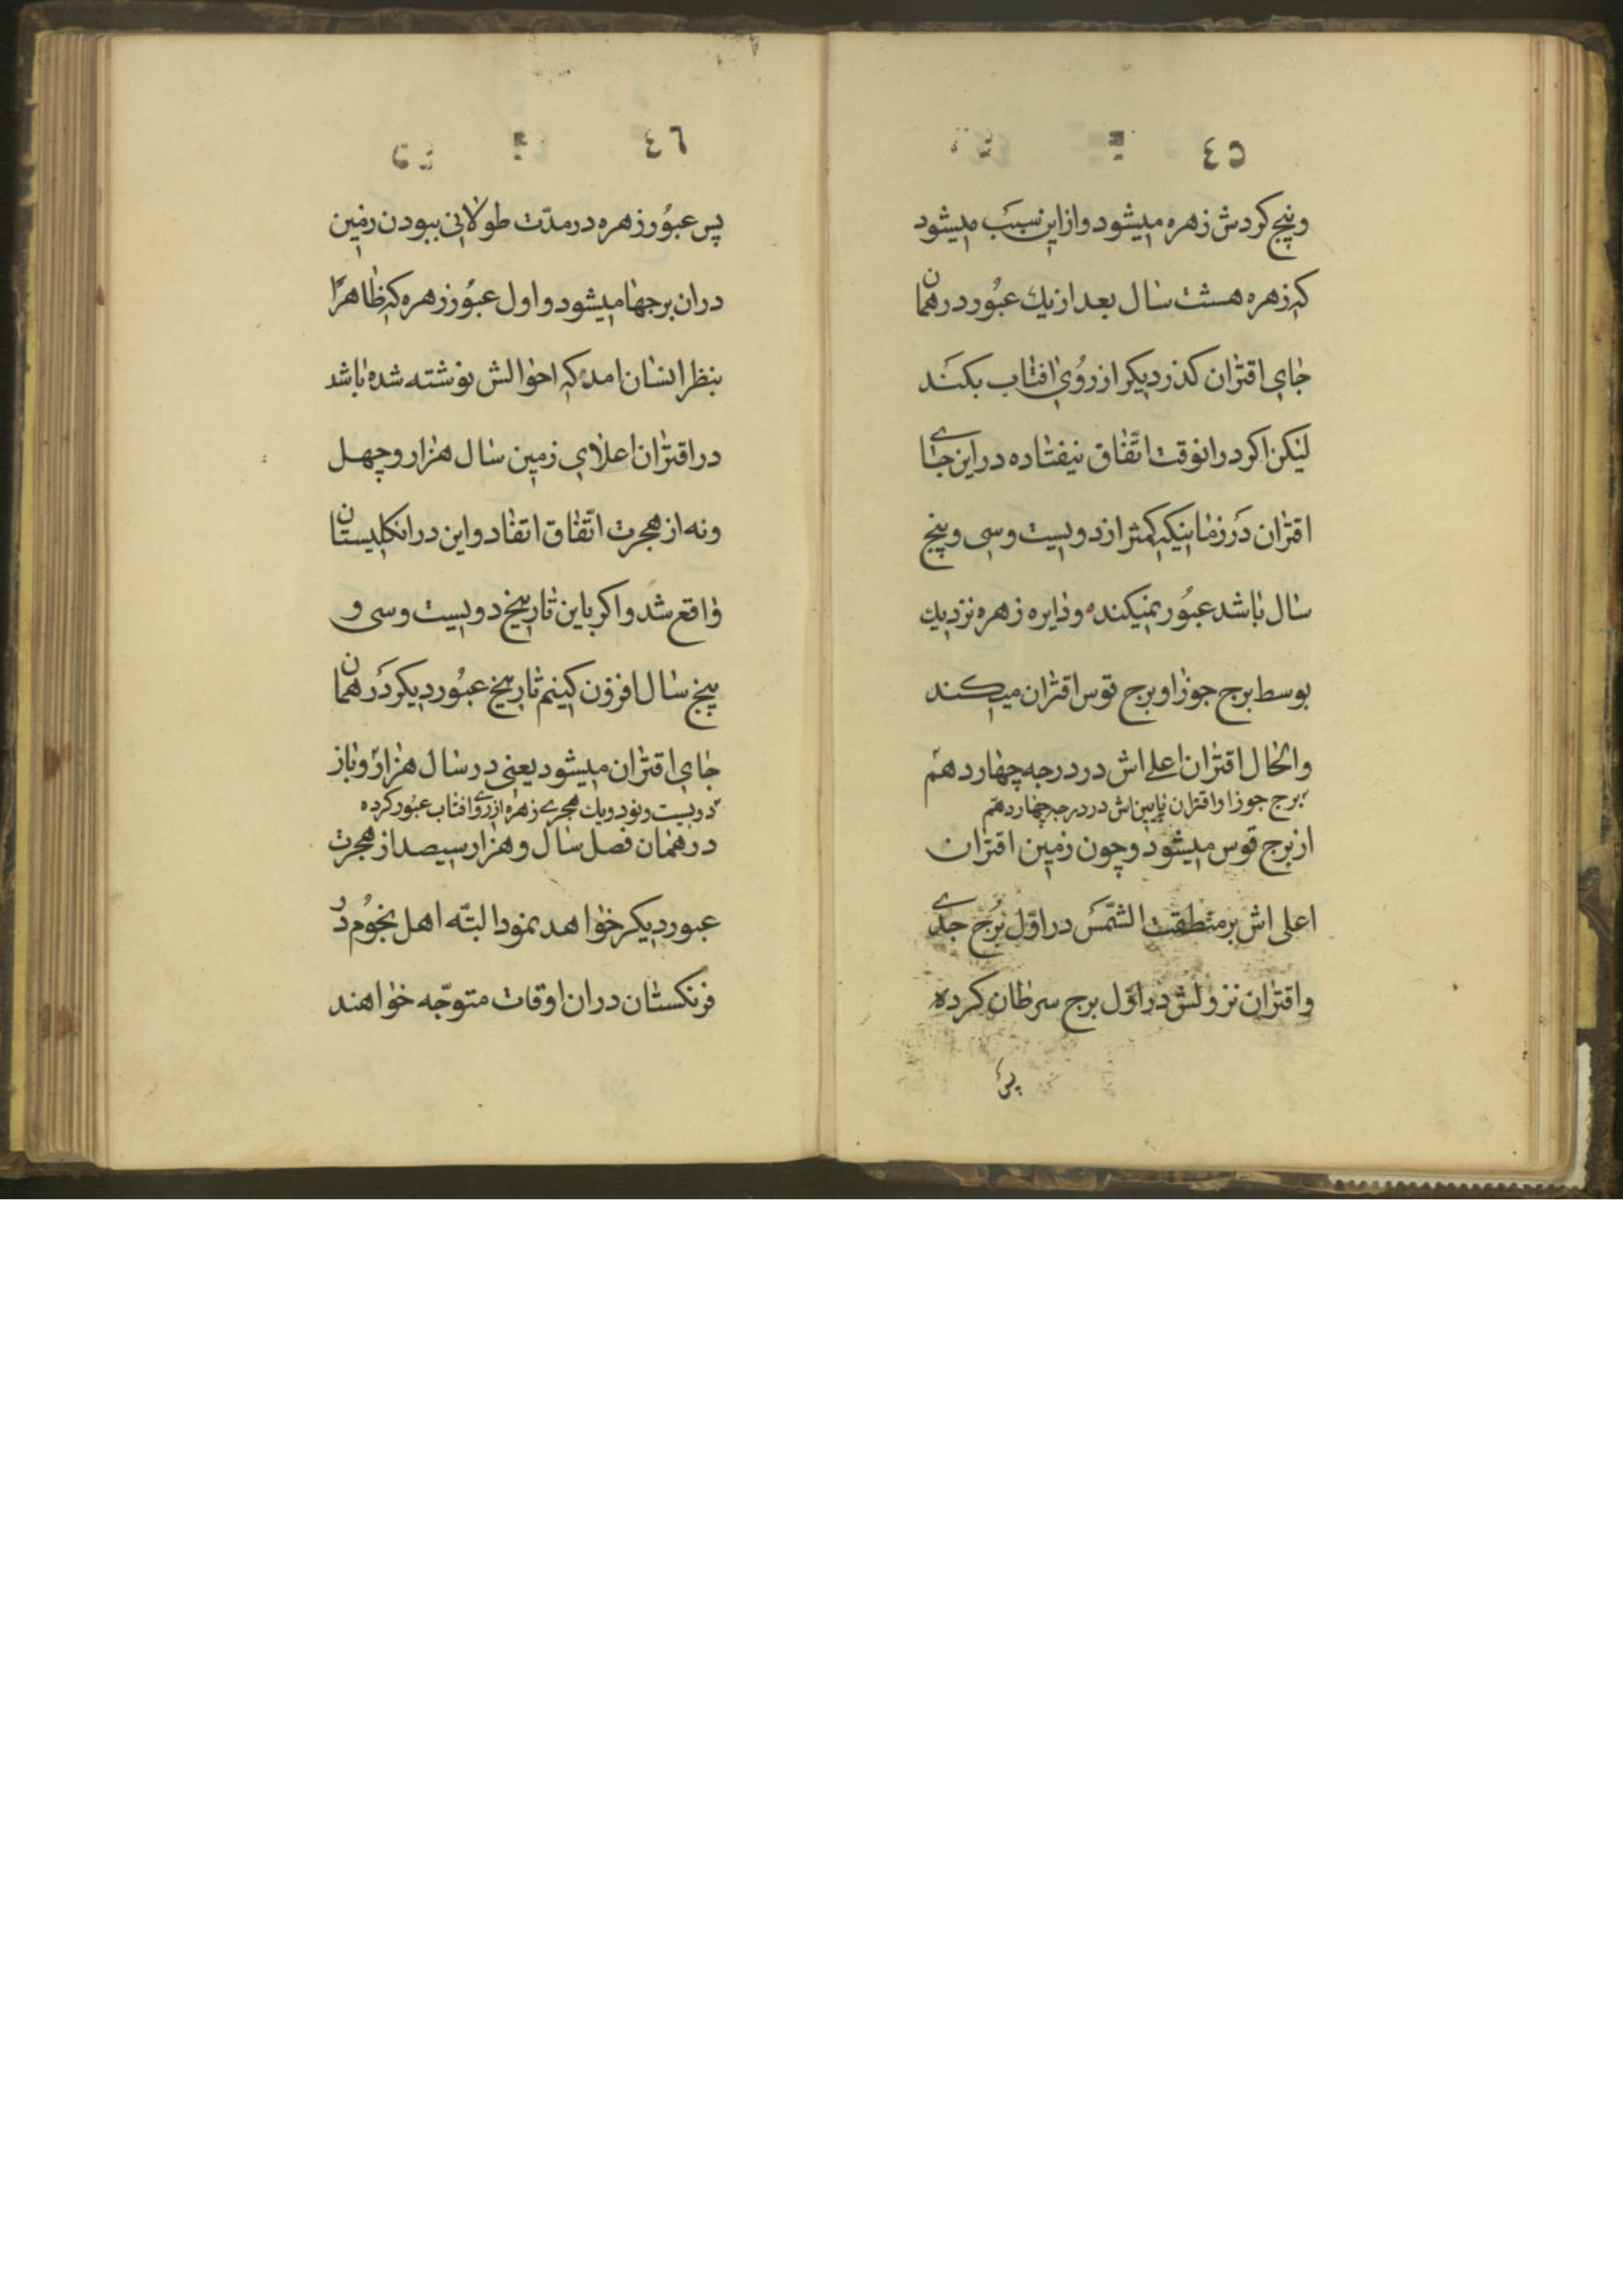 ٤٥
وپنج کردش زهره میشود وازاین سبب میشود
که زهره هشت سال بعد از یك عبور در همان
جای اقتران کذر دیکر از روی افتاب بکند
لیکن اکر درانوقت اتّفاق نیفتاده در این جای
اقتران در زمانیکه کمتر از دویست وسی وپنج
سال باشد عبور نمیکنده ودایره زهره نزدیك
بوسط برج جوزا وبرج قوس اقتران میکند
والحال اقتران اعلی اش در درجه چهاردهم
برج جوزا واقتران پایین اش در درجه چهاردهم
از برج قوس میشود وچون زمین اقتران
اعلی اش بر منطقت الشّمس در اوّل برج جدی
واقتران نزولش در اوّل برج سرطان کرده
پس
٤٦
پس عبور زهره در مدّت طولانی ببودن زمین
دران برجها میشود و اول عبور زهره که ظاهرًا
بنظر انسان امده که احوالش نوشته شده باشد
در اقتران اعلای زمین سال هزار وچهل
ونه از هجرت اتّفاق اتفاد واین در انکلیستان
واقع شد واکر باین تاریخ دویست وسی و
پنج سال افزون کینم تاریخ عبور دیکر در همان
جای اقتران میشود یعنی در سال هزار وباز
دویست ونود ویك هجری زهره از روی افتاب عبور کرده
در همان فصل سال وهزار سیصد از هجرت
عبور دیکر خواهد نمود البتّه اهل نجوم در
فرنکستان دران اوقات متوجّه خواهند